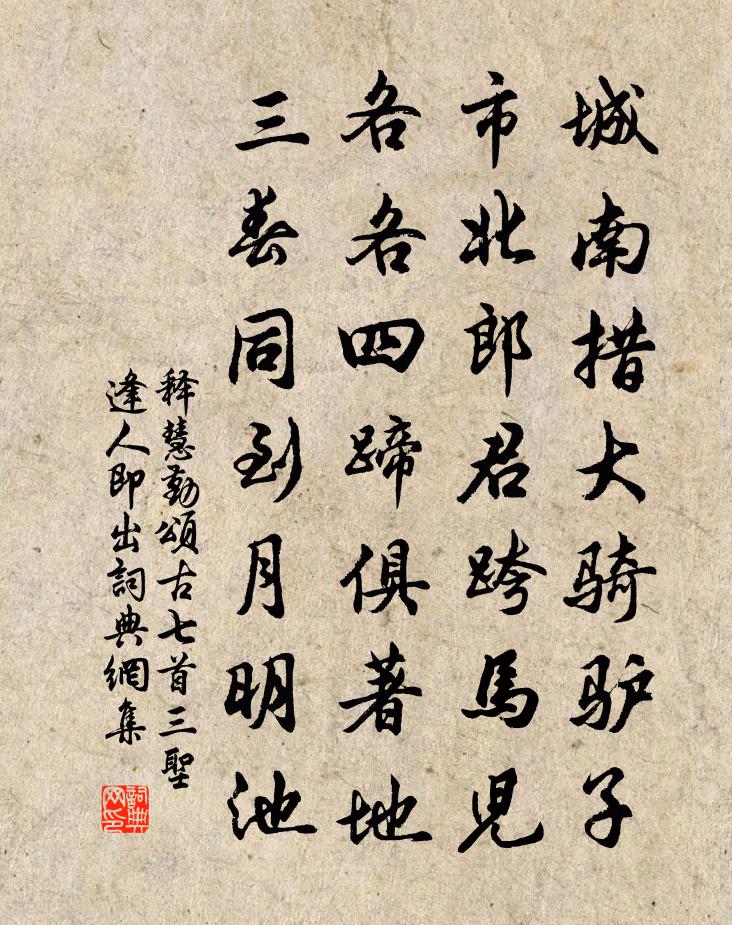 城南措大骑驴子
市北郎君跨馬児
各各四蹄俱著地
三春同到月明池
释慧勤頌古七首三聖
逢人即出詞典網集
詞典
网印